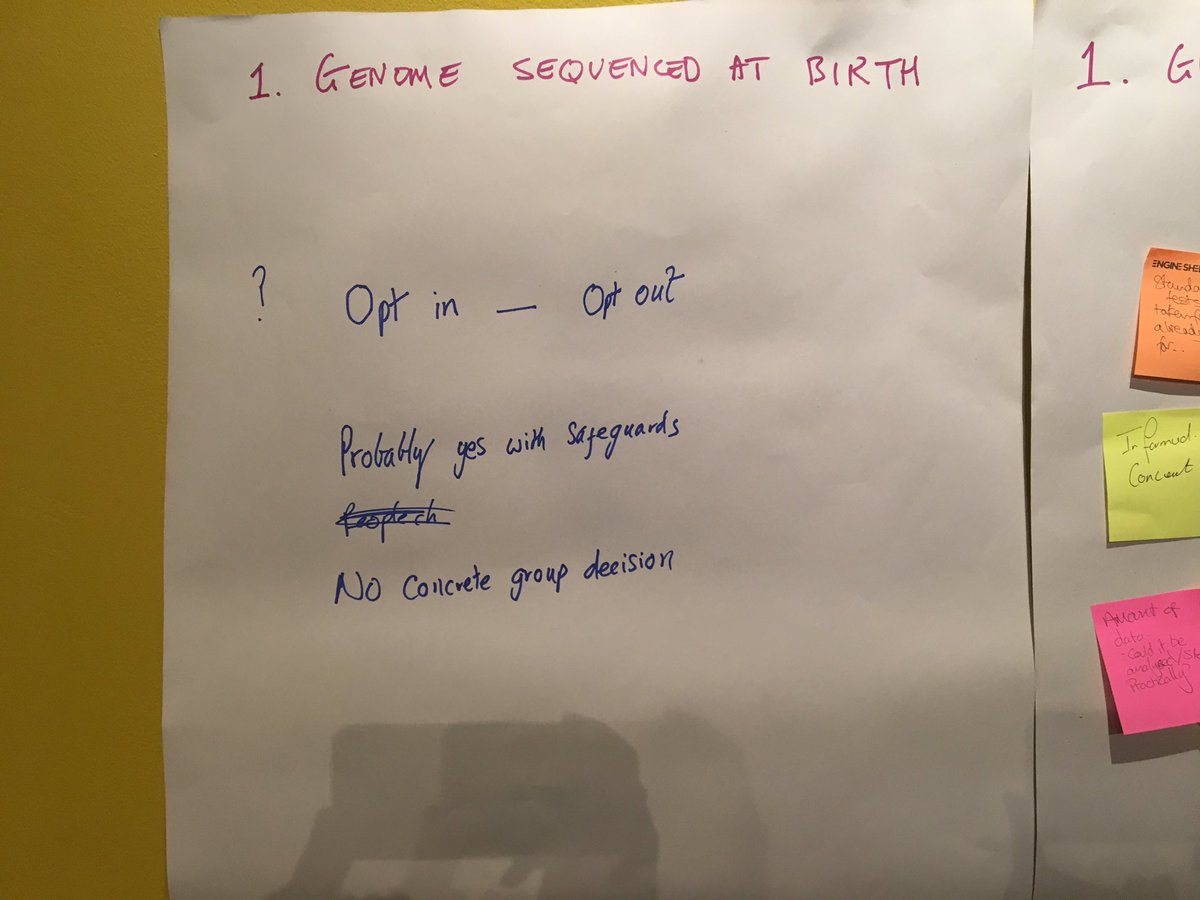 1. GENOME SEQUENCED AT BIRTH
? Opt in — Opt out
Probably yes with safeguards
No concrete group decision
1. G
ENGINE SHE
Standa
tests
taken
already
for...
Informed
Concent
Amount of
data
- Could it be
analysed/Sto
Practically